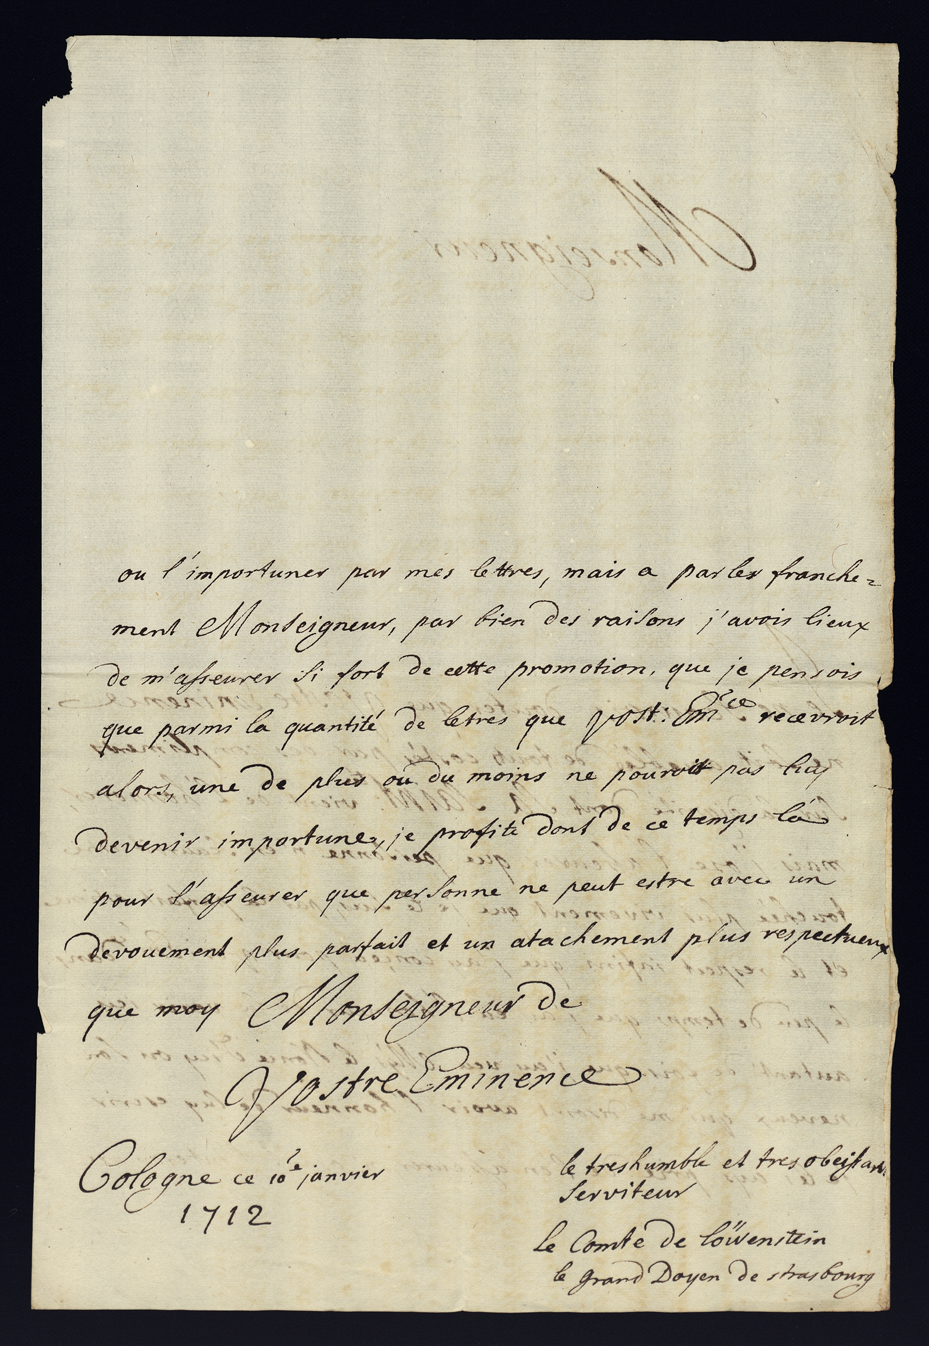 Monseigneur
ou l'importuner par mes lettres, mais a parler franche=
ment Monseigneur, par bien des raisons j'avois lieux
de m'asseurer si fort de cette promotion, que je pensois
que parmi la quantité de letres que vost: Em^ce recevroit
alors, une de plus ou du moins ne pouroit pas luy
devenir importune, je profite donc de ce temps là
pour l'asseurer que personne ne peut estre avec un
devouement plus parfait et un atachement plus respectueux
que moy Monseigneur de
Vostre Eminence
Cologne ce 10^e janvier
1712
le treshumble et tres obeissant
serviteur
le Comte de löwenstein
le grand Doyen de strasbourg